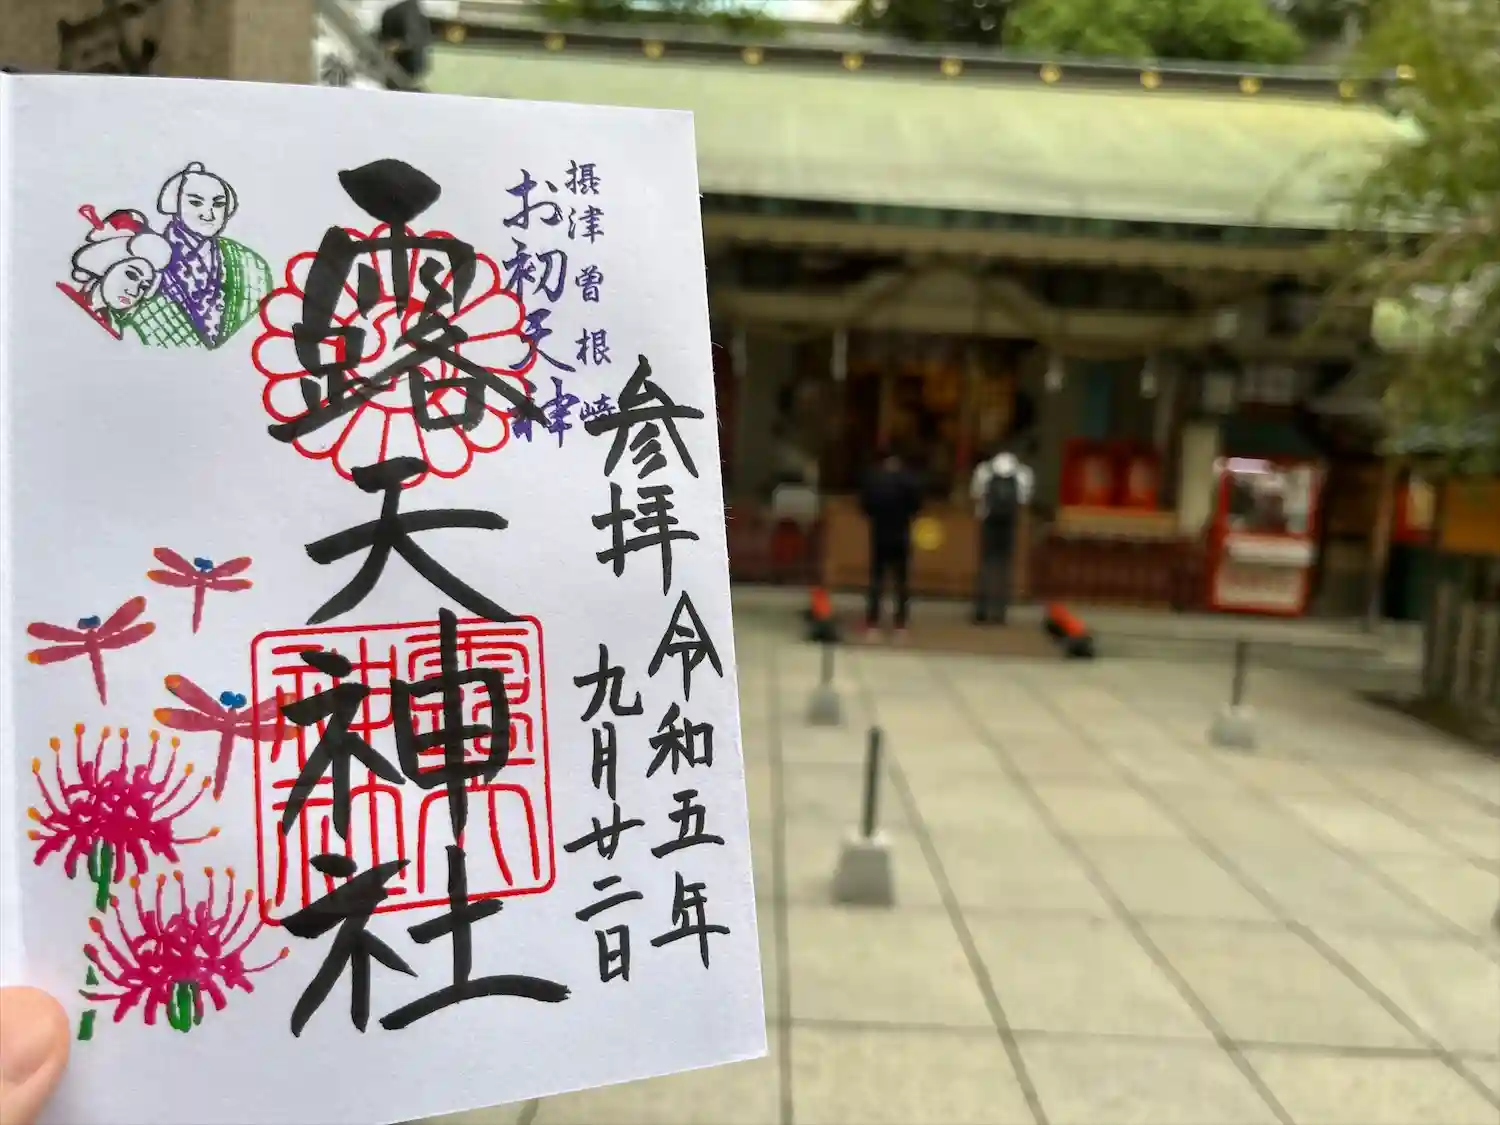 摂津曽根崎
お初天神
参拝
令和五年
九月廿二日
露天神社
露天
神社